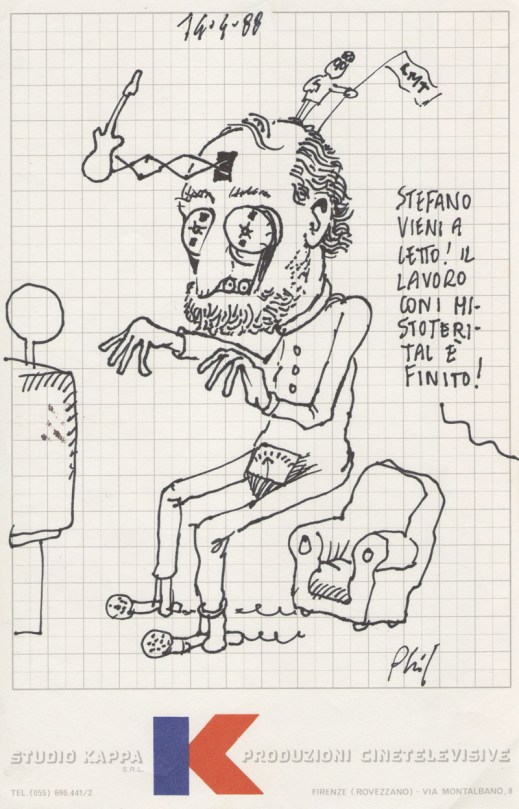 14·4·88
STEFANO
VIENI A
LETTO! IL
LAVORO
CON I MI-
STOTERI-
TAL È
FINITO!
Phil
STUDIO KAPPA
S.R.L.
K
PRODUZIONI CINETELEVISIVE
TEL. (055) 690.441/2
FIRENZE (ROVEZZANO) - VIA MONTALBANO, 8